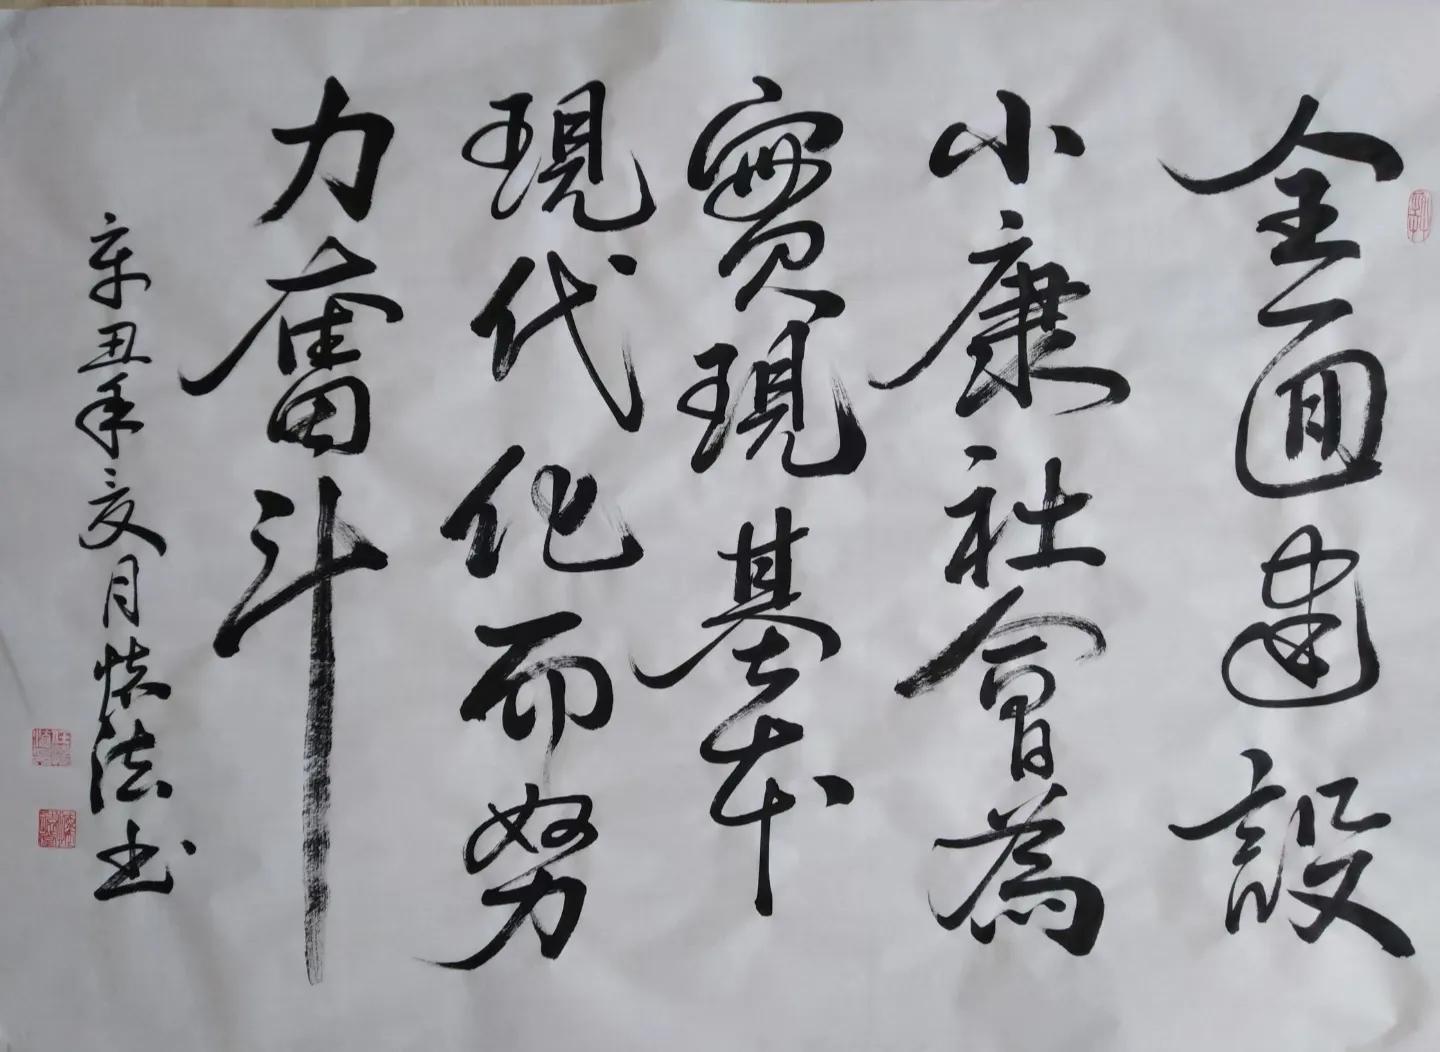 全面建設
小康社會為
實現基本
現代化而努
力奮斗
辛丑年夏月懷法书